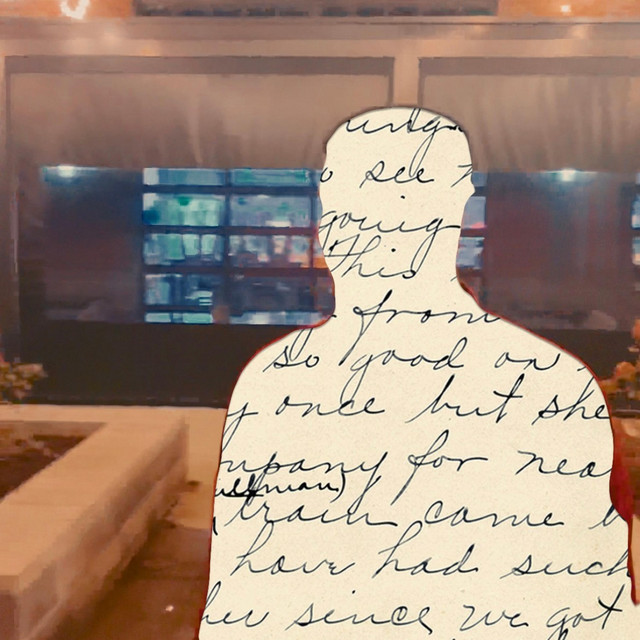 see
going
This
from
so good on
y once but she
mpany for nea
train came
have had such
her since we got